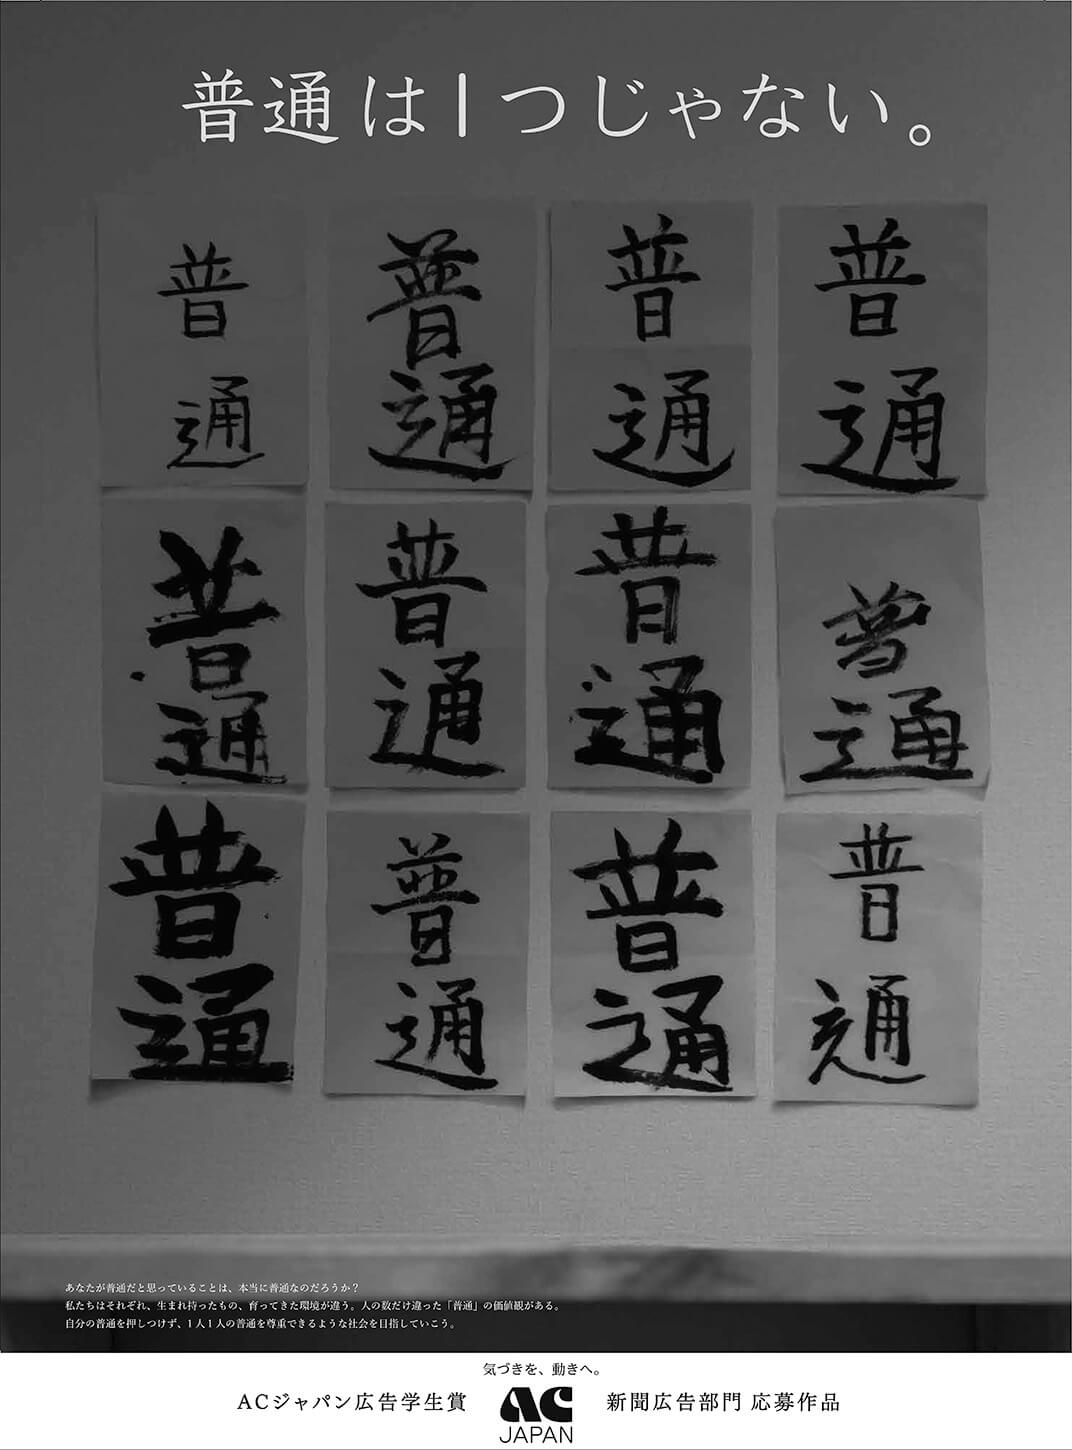 普通は1つじゃない。
普通
普通
普通
普通
普通
普通
普通
普通
普通
普通
普通
普通
あなたが普通だと思っていることは、本当に普通なのだろうか？
私たちはそれぞれ、生まれ持ったもの、育ってきた環境が違う。人の数だけ違った「普通」の価値観がある。
自分の普通を押しつけず、1人1人の普通を尊重できるような社会を目指していこう。
気づきを、動きへ。
ACジャパン広告学生賞
AC
JAPAN
新聞広告部門 応募作品